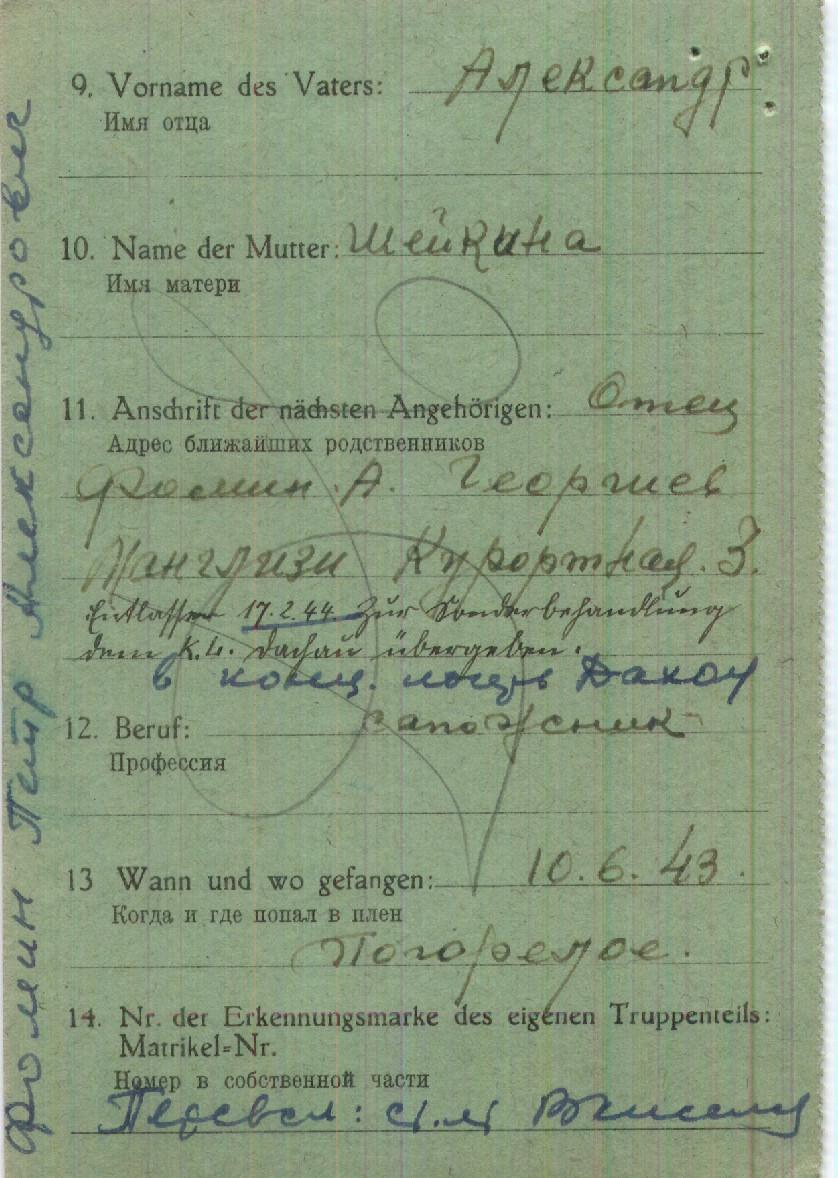 9. Vorname des Vaters: Александр
Имя отца
10. Name der Mutter: Шейкина
Имя матери
11. Anschrift der nächsten Angehörigen: Отец
Адрес ближайших родственников
Фомин А. Георгиев
Манглизи Курортная. 3.
Entlassen 17.2.44. Zur Sonderbehandlung
dem K.L. Dachau übergeben.
в конц. лагерь Дахау
12. Beruf: сапожник
Профессия
13 Wann und wo gefangen: 10.6.43.
Когда и где попал в плен
Погорелое.
14. Nr. der Erkennungsmarke des eigenen Truppenteils:
Matrikel=Nr.
Номер в собственной части
Перевел:
Фомин Петр Александрович